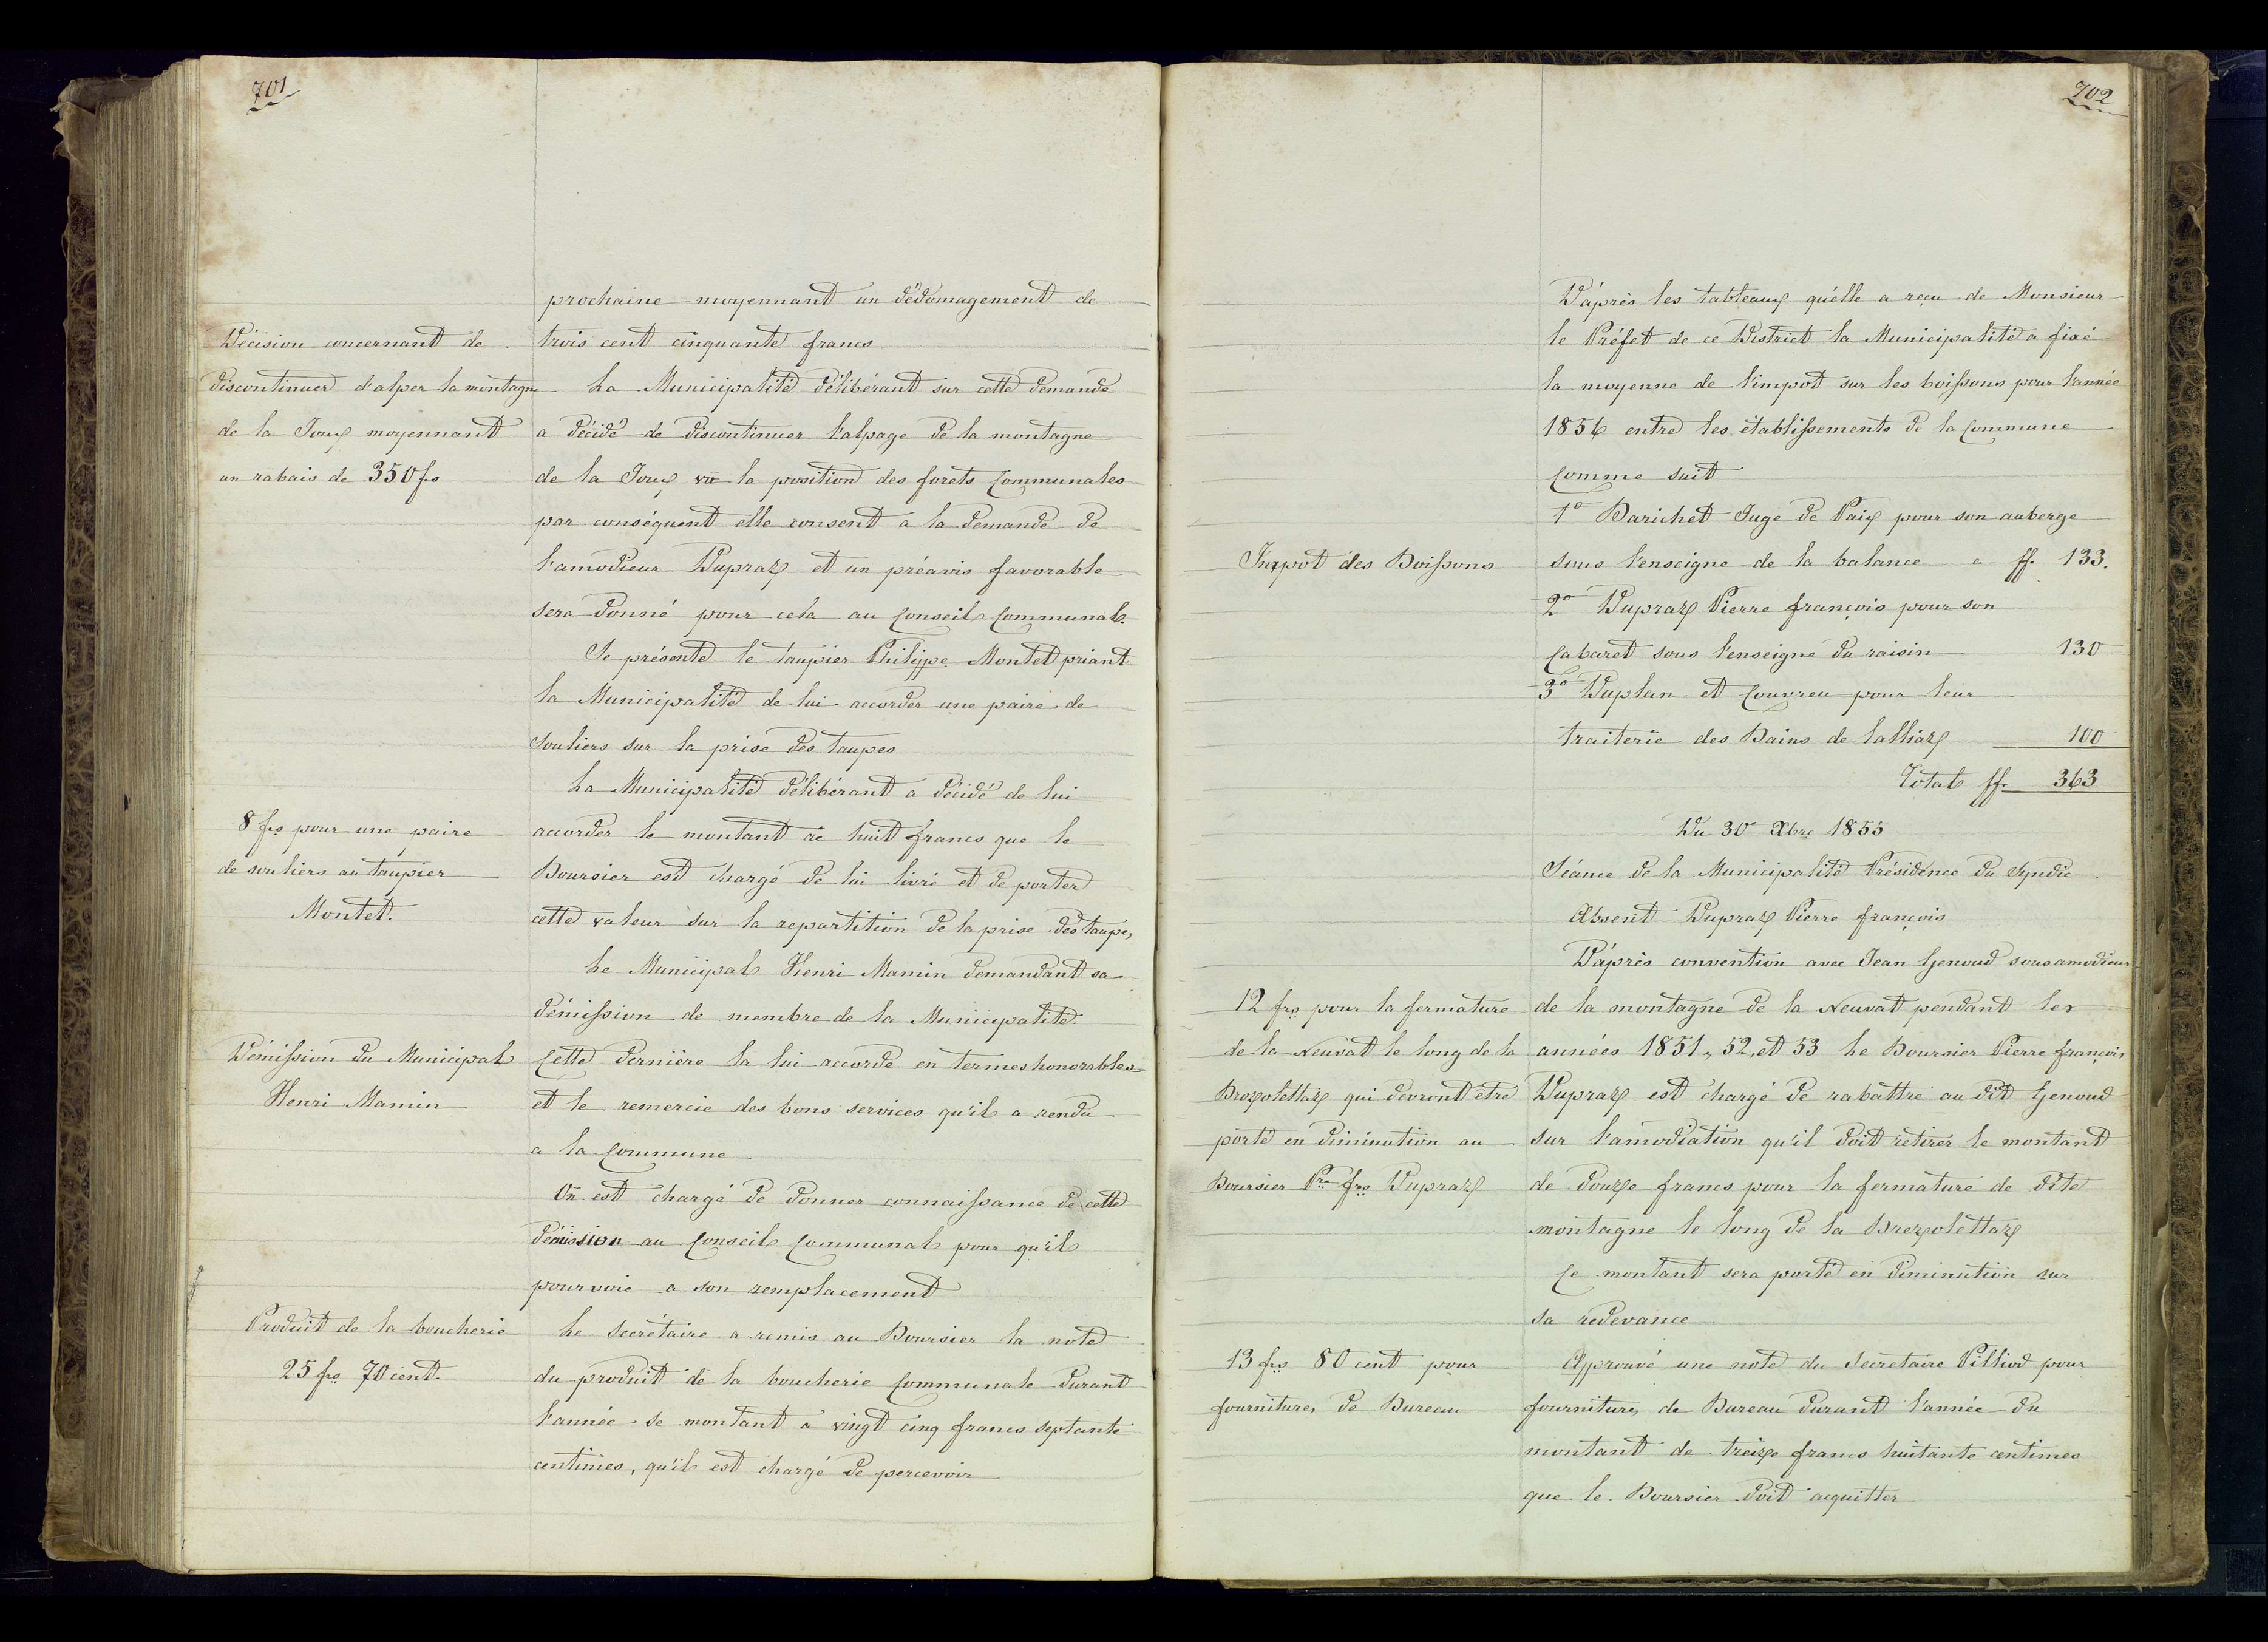 701
prochaine moyennant un dédomagement de
Décision concernant de
trois cent cinquante francs
discontinuer d'alper la montagne
La Municipalité délibérant sur cette demande
de la Joux moyennant
a décidé de discontinuer l'alpage de la montagne
un rabais de 350 frs
de la Joux vu la position des forets Communales
par conséquent elle consent a la demande de
l'amodieur Dupraz et un préavis favorable
sera donné pour cela au Conseil Communal.
Se présente le taupier Philippe Montet priant
la Municipalité de lui accorder une paire de
souliers sur la prise des taupes
La Municipalité délibérant a décidé de lui
8 frs pour une paire
accorder le montant de huit francs que le
de souliers au taupier
Boursier est chargé de lui livré et de porter
Montet.
cette valeur sur la repartition de la prise des taupes
Le Municipal Henri Mamin demandant sa
démission de membre de la Municipalité.
Démission du Municipal
Cette dernière la lui accorde en termes honorables
Henri Mamin
et le remercie des bons services qu'il a rendu
a la Commune
On est chargé de donner connaissance de cette
démission au Conseil Communal pour qu'il
pourvoie a son remplacement
Produit de la boucherie
Le Secrétaire a remis au Boursier la note
25 frs 70 cent.
du produit de la boucherie Communale durant
l'année se montant à vingt cinq francs septante
centimes, qu'il est chargé de percevoir
702
D'après les tableaux qu'elle a reçu de Monsieur
le Préfet de ce District la Municipalité a fixé
la moyenne de l'impot sur les boissons pour l'année
1856 entre les établissements de la Commune
Comme suit
1º Barichet Juge de Paix pour son auberge
Impot des Boissons
sous l'enseigne de la balance a ff. 133.
2º Dupraz Pierre françois pour son
Cabaret sous l'enseigne du raisin 130
3º Duplan et Couvreu pour leur
traiterie des Bains de lalliaz 100
Total ff. 363
Du 30 Xbre 1855
Séance de la Municipalité Présidence du Syndic
Absent Dupraz Pierre françois
D'après convention avec Jean Genoud sousamodieur
12 frs pour la fermature
de la montagne de la Neuvat pendant les
de la Neuvat le long de la
années 1851, 52, et 53 le Boursier Pierre françois
Brezolettaz qui devront être
Dupraz est chargé de rabattre au dit Genoud
porté en diminution au
sur l'amodiation qu'il doit retirer le montant
Boursier Pre frs Dupraz
de douze francs pour la fermature de dite
montagne le long de la Brezolettaz
Ce montant sera porté en diminution sur
sa redevance
13 frs 80 cent pour
Approuvé une note du Secretaire Pilliod pour
fournitures de Bureau
fournitures de Bureau durant l'année du
montant de treize francs huitante centimes
que le Boursier doit acquitter